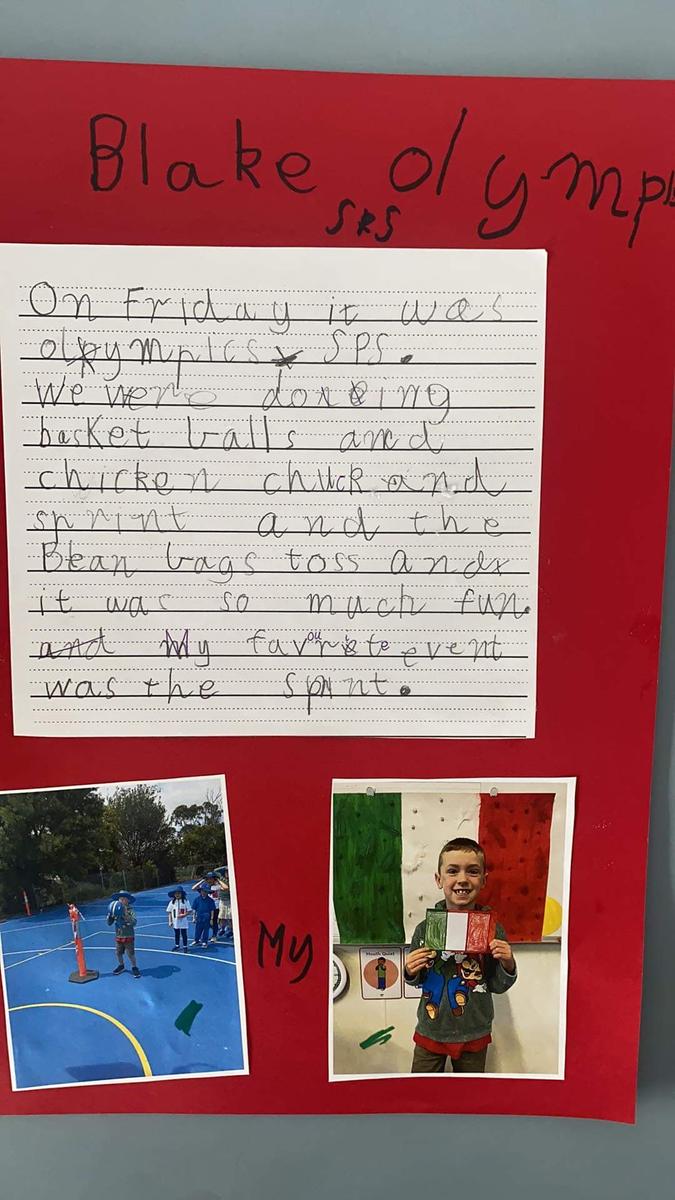 Blake olympi
SRS
On Friday it was
olympics SPS.
We were doing
basket balls and
chicken chuck and
sprint and the
Bean bags toss and
it was so much fun.
and My favourite event
was the sprint.
My
Mouth Quiet